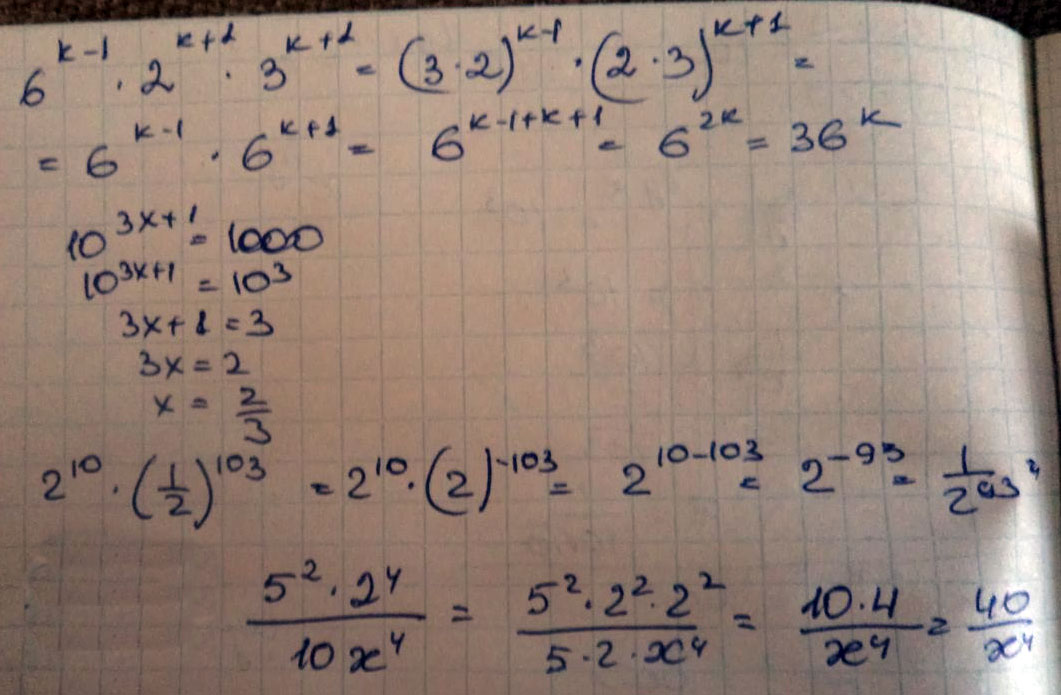 6^(k-1) · 2^(k+1) · 3^(k+1) = (3·2)^(k-1) · (2·3)^(k+1) =
= 6^(k-1) · 6^(k+1) = 6^(k-1+k+1) = 6^(2k) = 36^k
10^(3x+1) = 1000
10^(3x+1) = 10^3
3x+1 = 3
3x = 2
x = 2/3
2^10 · (1/2)^103 = 2^10 · (2)^(-103) = 2^(10-103) = 2^(-93) = 1/2^93
(5^2 · 2^4)/(10x^4) = (5^2 · 2^2 · 2^2)/(5 · 2 · x^4) = (10·4)/x^4 = 40/x^4